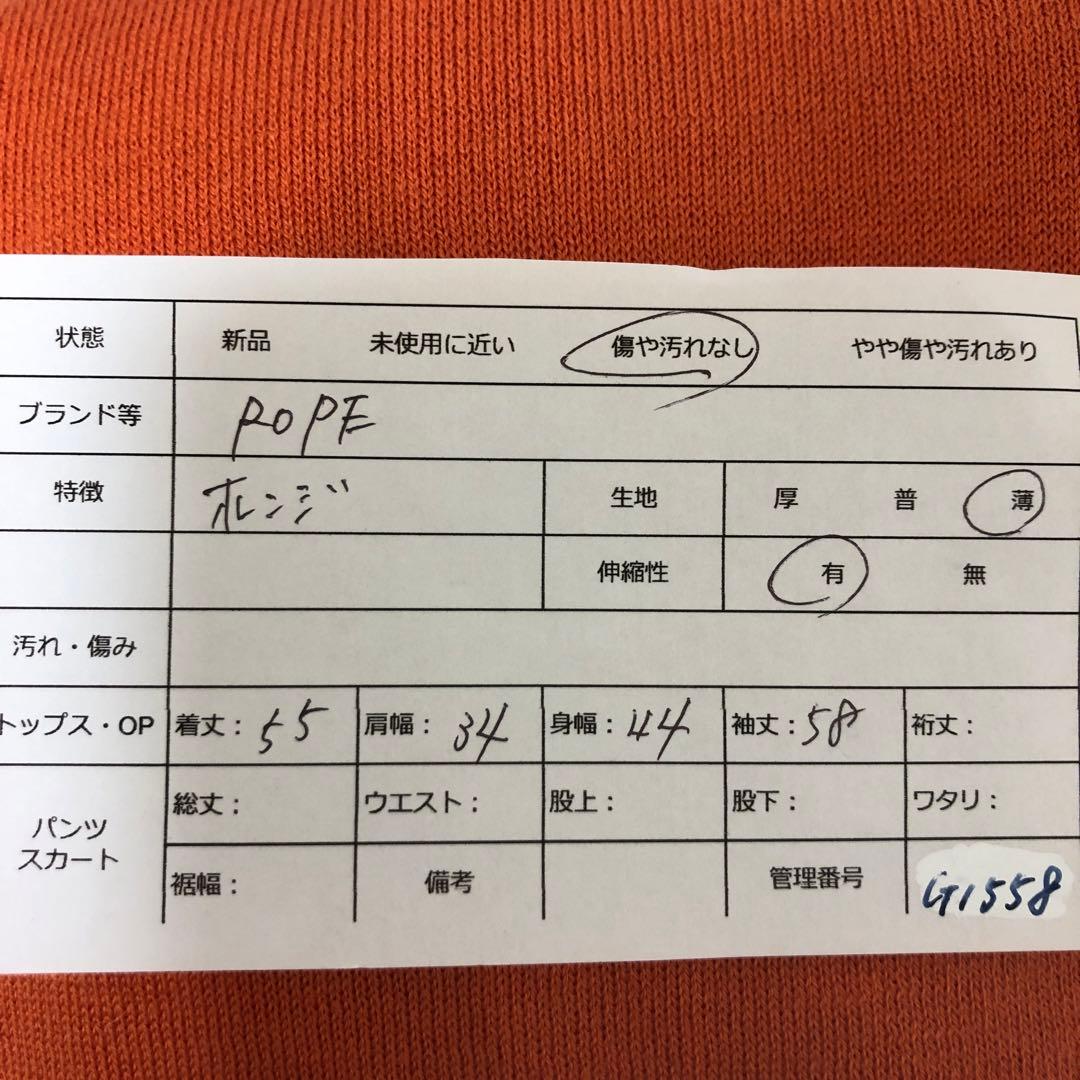 状態 新品 未使用に近い 傷や汚れなし やや傷や汚れあり
ブランド等 ROPE
特徴 オレンジ 生地 厚 普 薄
伸縮性 有 無
汚れ・傷み
トップス・OP 着丈: 55 肩幅: 34 身幅: 44 袖丈: 58 裄丈:
総丈: ウエスト: 股上: 股下: ワタリ:
パンツ
スカート
裾幅: 備考 管理番号 G1558